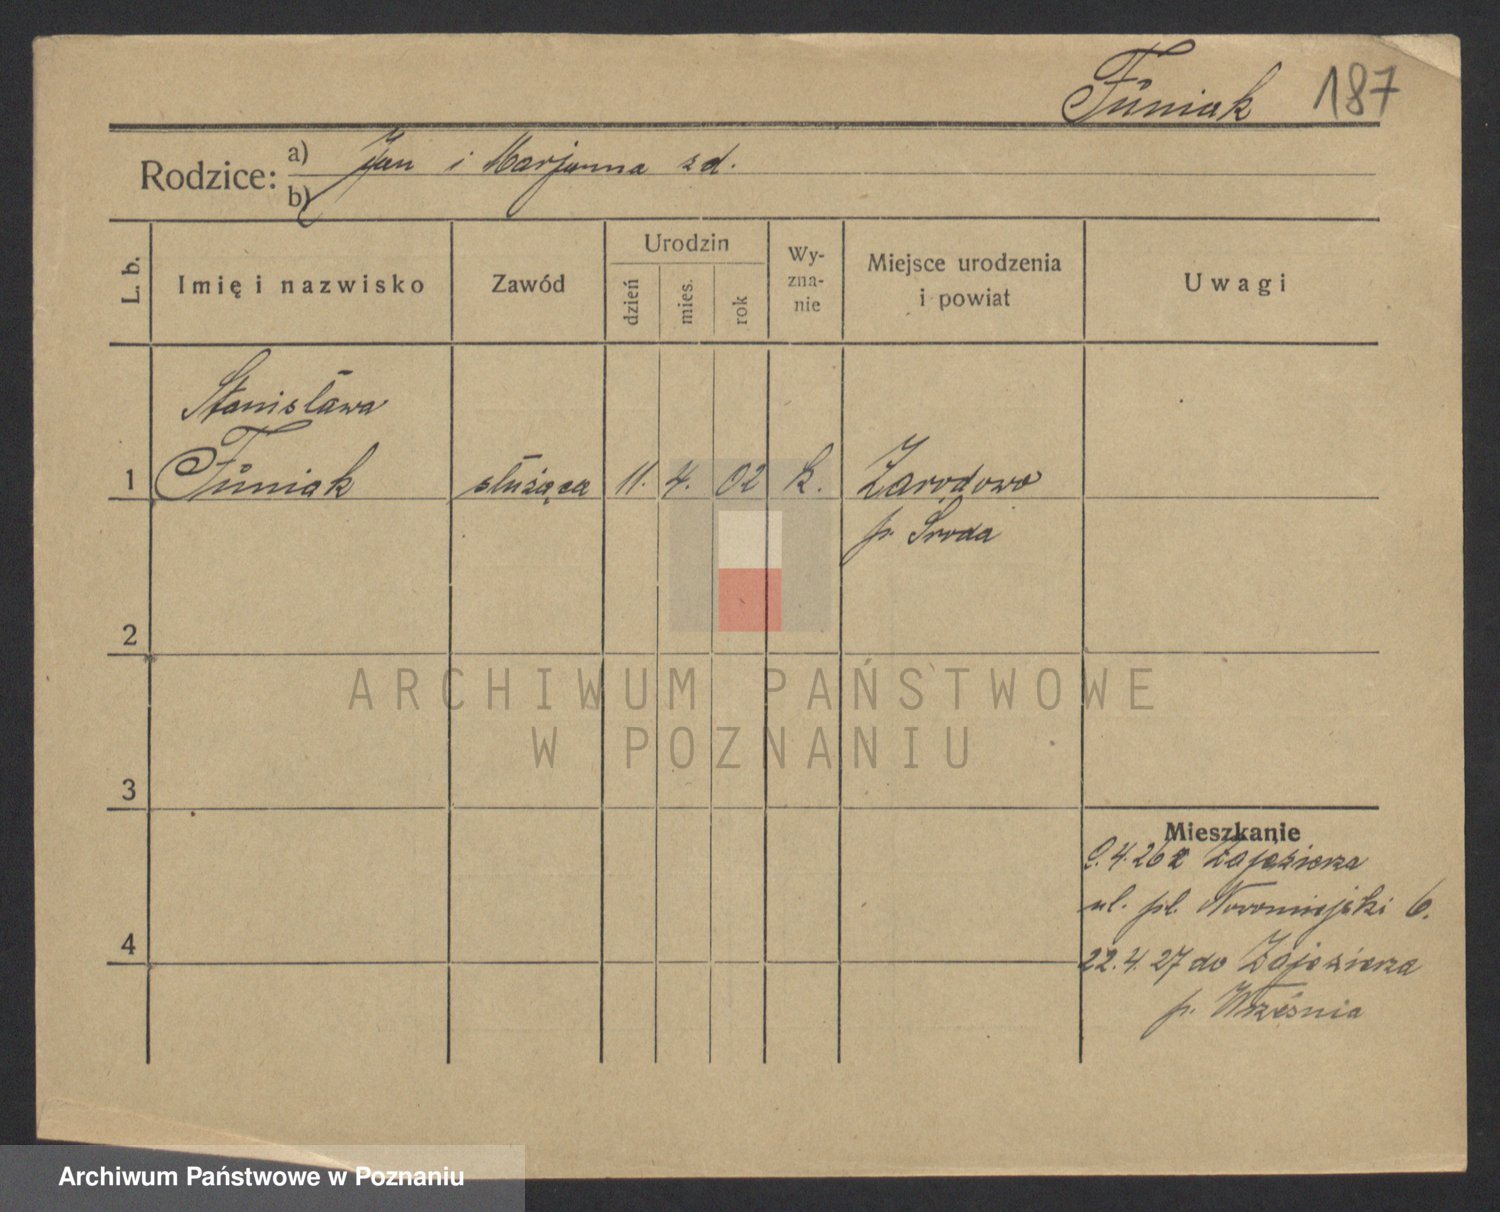 Funiak 187
Rodzice: a) Jan i Marjanna zd.
b)
L. b. Imię i nazwisko Zawód Urodzin dzień mies. rok Wy-zna-nie Miejsce urodzenia i powiat Uwagi
Stanisława
1 Funiak służąca 11. 4. 02 k. Zarodowo
p. Środa
2
ARCHIWUM PAŃSTWOWE
W POZNANIU
3
Mieszkanie
9.4.26 z Zajezierza
ul. pl. Nowomiejski 6.
4
22.4.27 do Zajezierza
p. Września
Archiwum Państwowe w Poznaniu